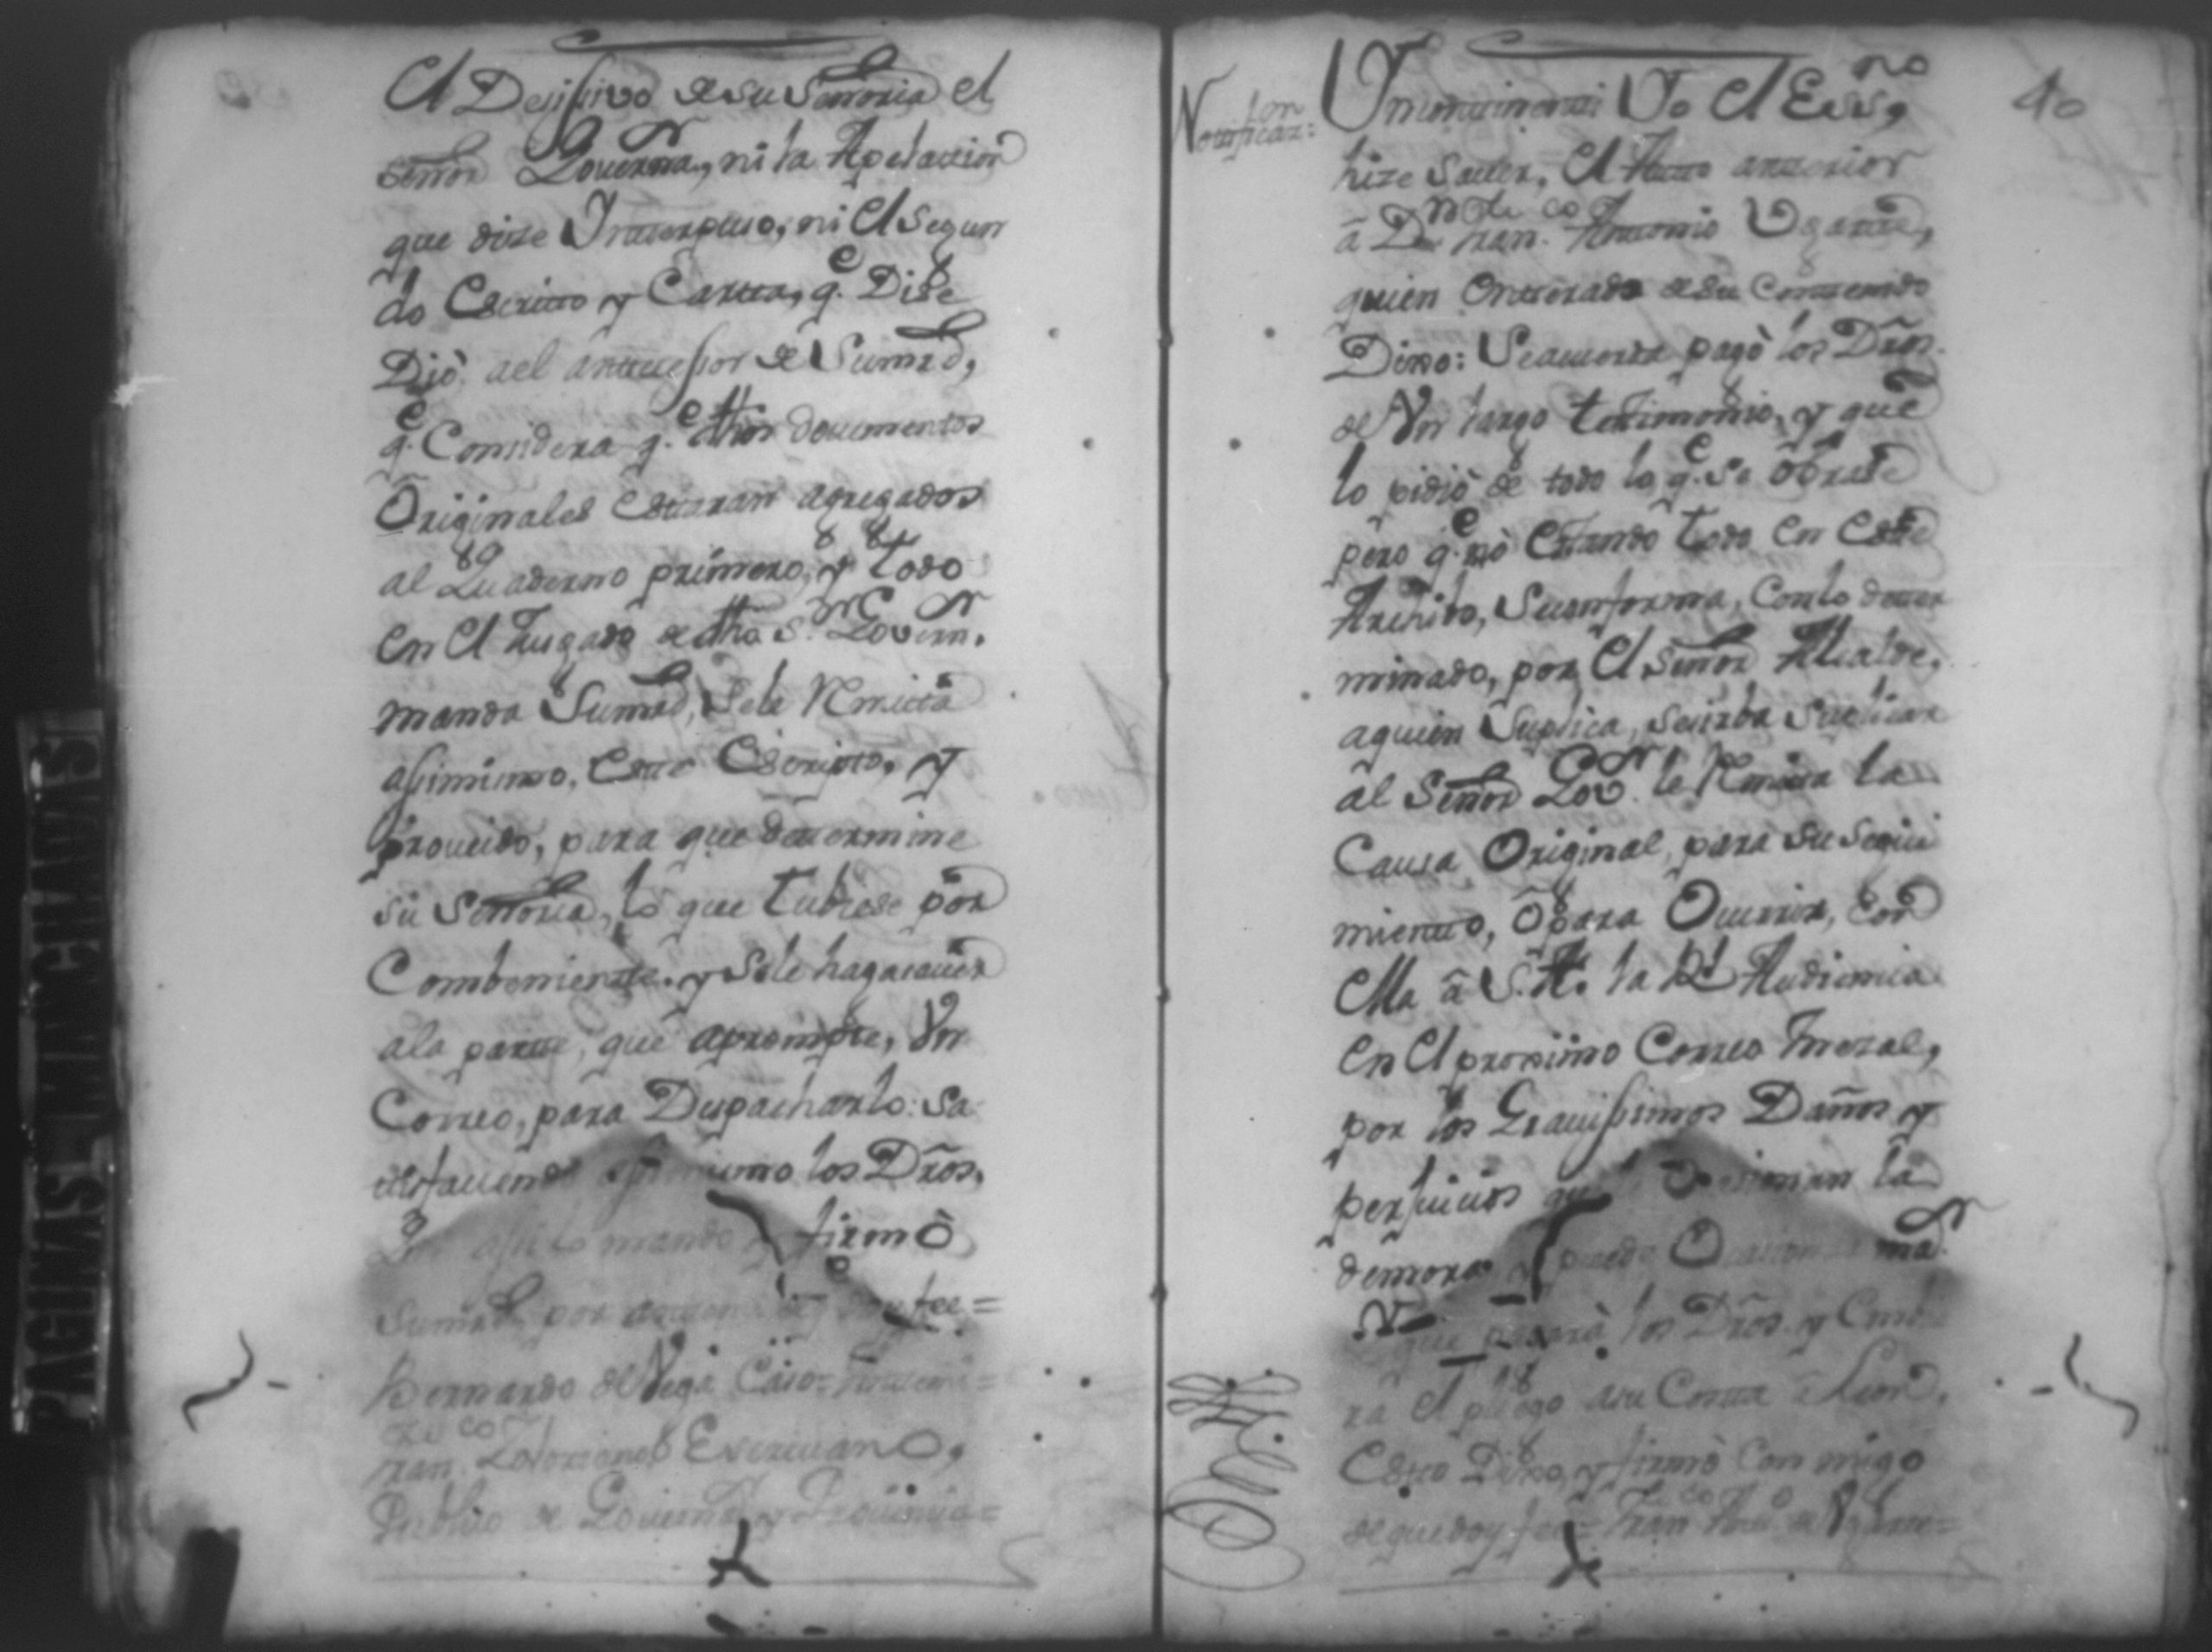 El Desissivo de su Señoria el
señor Governa.or, ni la Apelacion
que dise Interpuso, ni el segun
do Escritto y Cartta, q.e Dise
Dió ael anttesessor de Sumrd,
q.e Considera q.e dhos documentos
Originales esttaran agregados
al Quaderno primero, y todo
en el Jusgado de dho S.or Govern.or
manda Sumrd, Se le Remitta
assimismo, Estte Escripto, y
proveido, para que determine
su Señoria, lo que tubiese por
Combeniente. y Se le haga saver
ala partte, que aprompte, Vn
Correo, para Despacharlo: Sa
tisfaciendo assimismo los Dros,
assi lo mando y firmó
Sumrd, por
Bernardo de Vega
Fran.co Escrivano,
Publico de Governa.on y Provincia=
40
Notificaz.ion:
Yncontinenti Yo el Ess.no
hize saver, El Autto antterior
á D.n Fran.co Anttonio Ugartte,
quien Entterado de su Conttenido
Dixo: pagó los Dros
de Vn largo testimonio, y que
lo pidió de todo lo q.e Se Obrase
pero q.e no Estando todo en Estte
Archibo, Seconforma, Con lo detter
minado, por el Señor Alcalde,
aquien Suplica, Se sirba Suplicar
al Señor Gov.or le Remitta la
Causa Original, para su Segui
miento, O para Ocurrir, Con
Ella á S.A. la R.l Audiencia
en el proximo Correo
por los Gravissimos Daños y
perjuicios que le Ocasionan la
demora y puede
que pagará los Dros. y
ra el pliego asu Costta
Estto Dixo, y firmó Con migo
de que doy fee= Fran.co Antt.o de Ugartte=
PAGINAS MANCHADAS